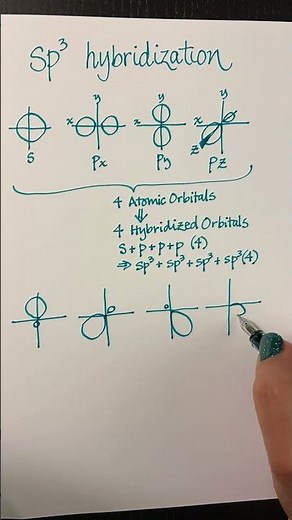 Sp³ hybridization
y y y
x x x
z
S Px Py Pz
4 Atomic Orbitals
⇓
4 Hybridized Orbitals
S+p+p+p (4)
⇒ sp³+sp³+sp³+sp³(4)